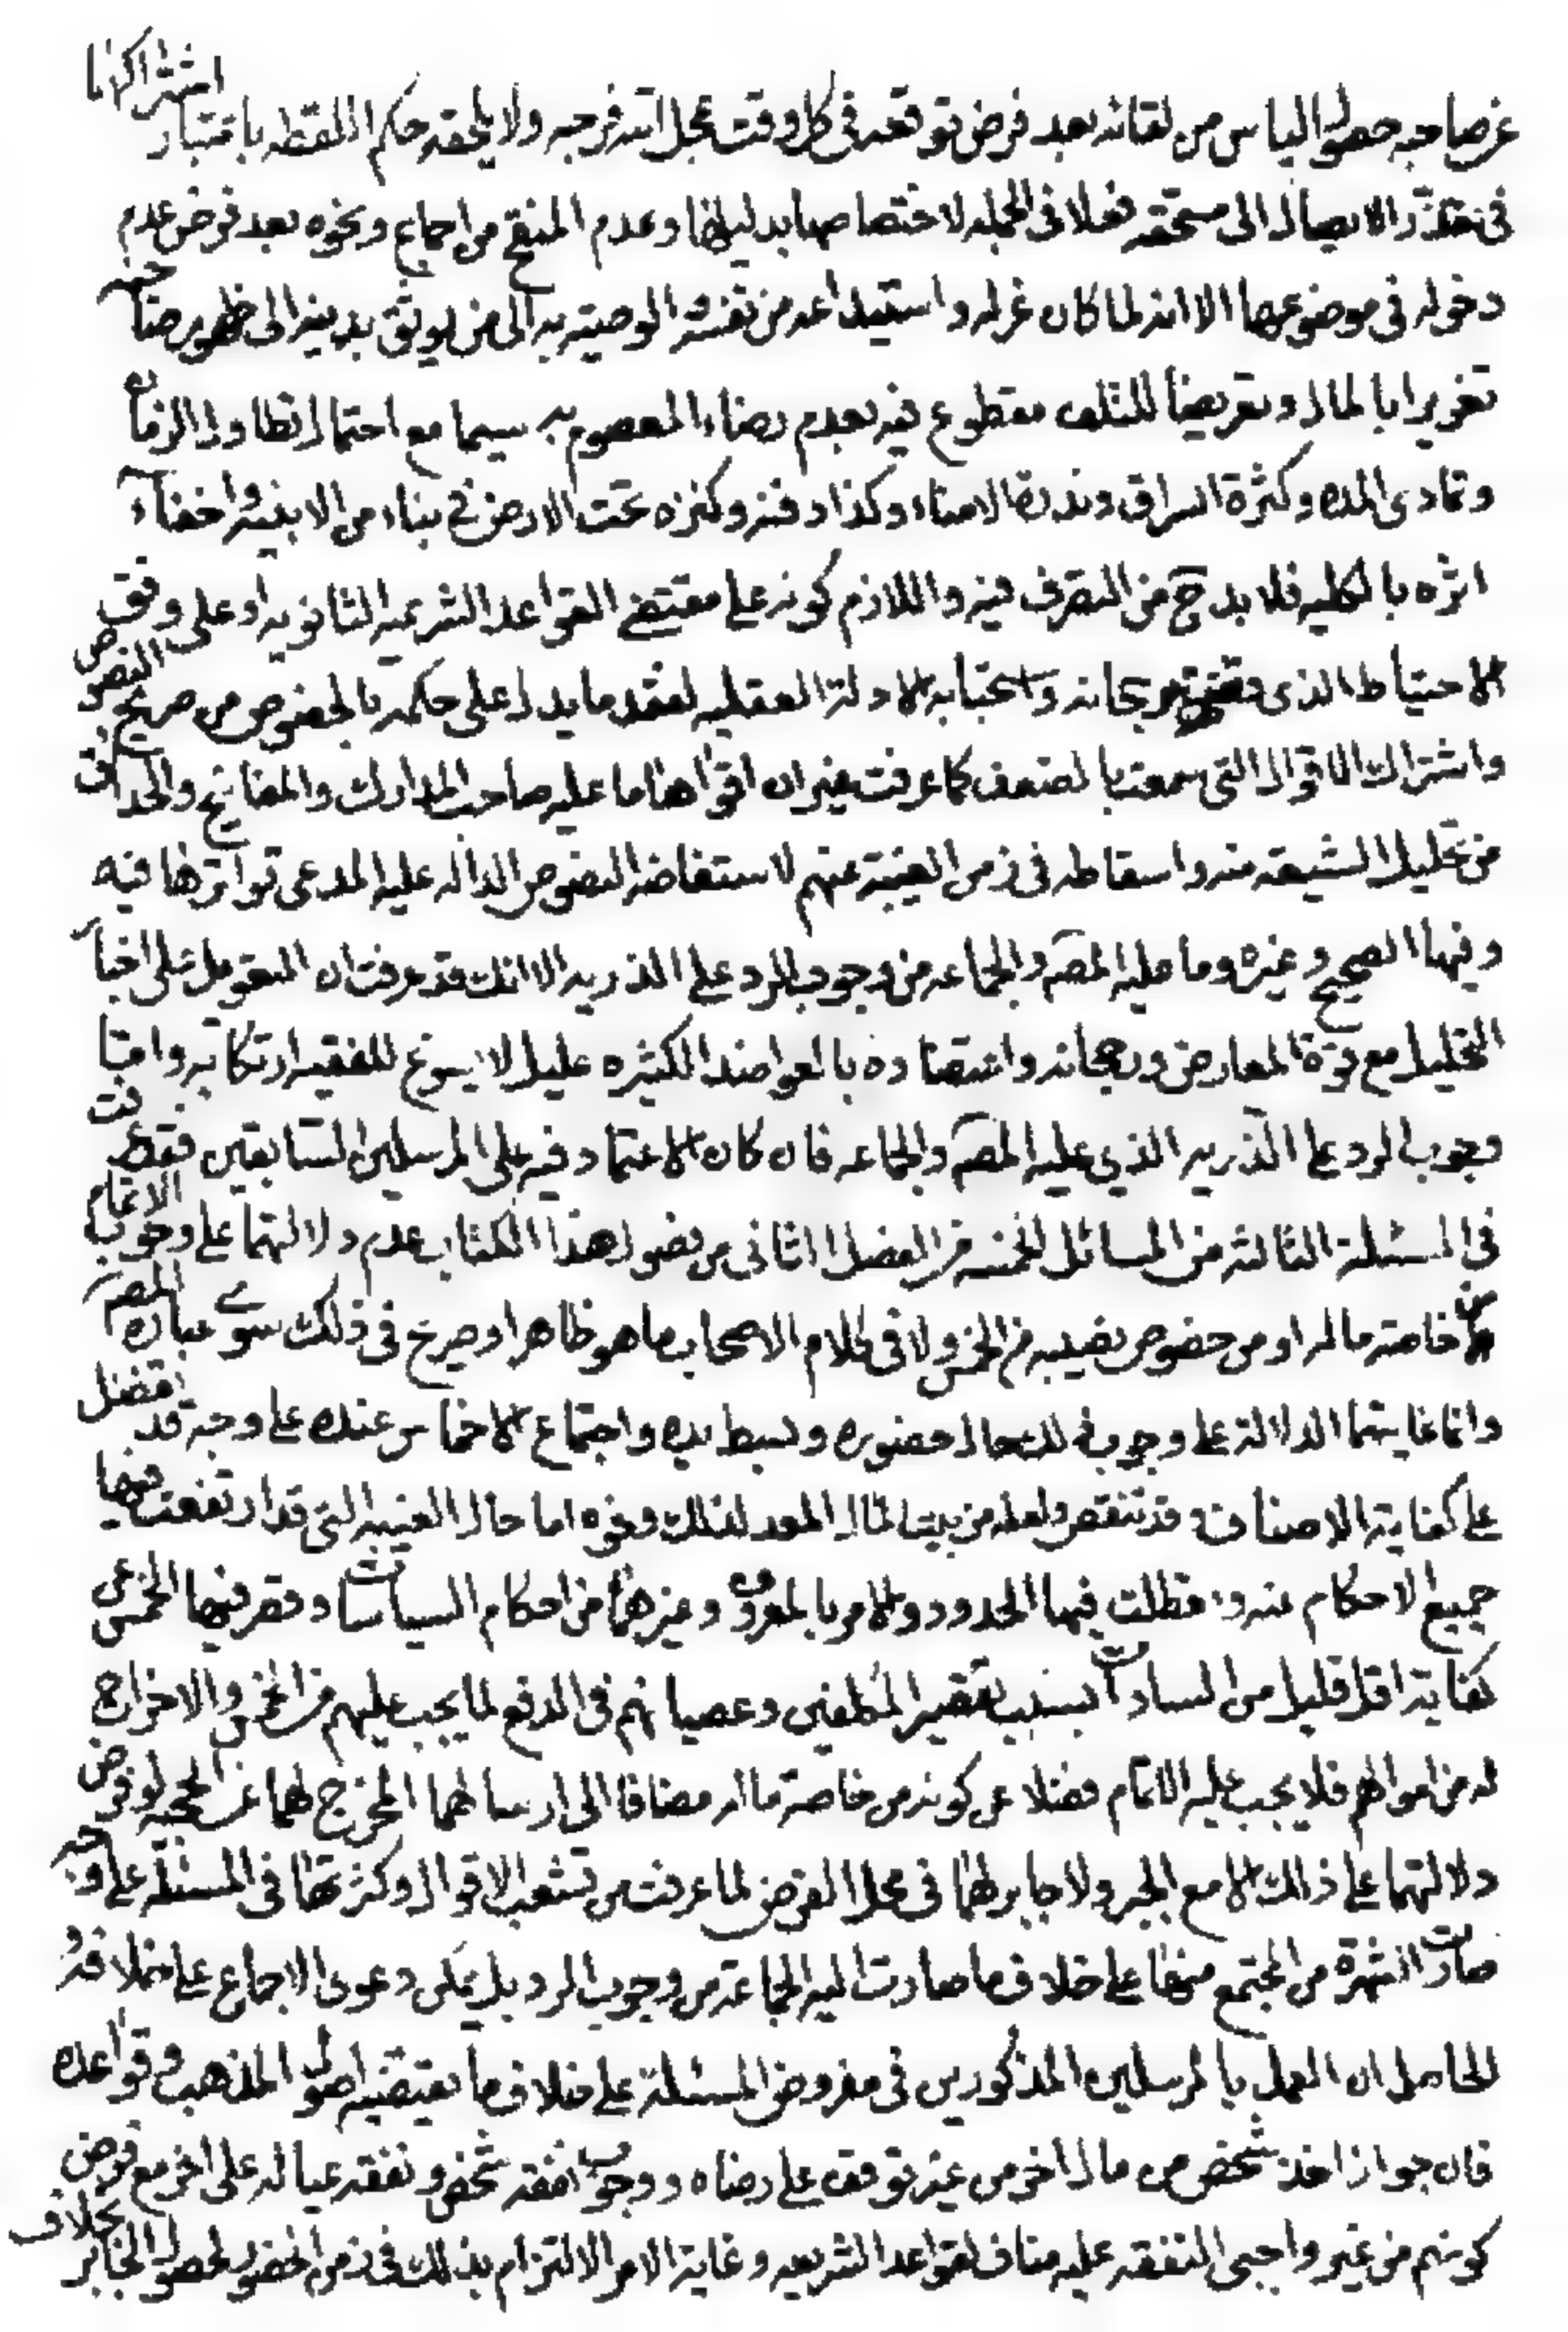 عن صاحبه حصول الياس من لقائه بعد فرض توقعه فى كل وقت عجل الله فرجه ولا يلحقه حكم اللقطه باعتبار اشتراكهما
فى تعذر الايصال الى مستحقه فعلا فى الجمله لاختصاصها بدليلها وعدم المنقح من اجماع ونحوه بعد فرض عدم
دخوله فى موضوعها الا انه لما كان عزله واستيداعه من نفسه والوصيته به الى من يوثق بدينه الى ظهور صاحبه
تغريرا بالمال وتعريضا للتلف مقطوع فيه بعدم رضاء المعصوم به سيما مع احتمال تطاول الزمان
وتمادى المده وكثرة السراق وندرة الامناء وكذا دفنه وكنزه تحت الارض فى بناء من الابنيه واخفاء
اثره بالكليه فلا بد ح من التصرف فيه واللازم كونه على مقتضى القواعد الشرعيه الثانويه او على وفق
الاحتياط الذى برجحانه واستحبابه الادلة العقليه لفقد ما يدل على حكمه بالخصوص من صريح النصوص
واشتراك الاقوال التى سمعت بالضعف كما عرفت غير ان اقواها ما عليه صاحب المدارك والمفاتيح والحدائق
من تحليل الشيعة منه واسقاطه فى زمن الغيبة عنهم لاستفاضة النصوص الداله عليه المدعى تواترها فيه
وفيها الصحيح وغيره وما عليه المصم والجماعه من وجوب الرد على الذريه الا انك قد عرفت ان التعويل على اخبار
التحليل مع قوة المعارض ورجحانه واعتضاده بالعواضد الكثيره عليل لا يسوغ للفقيه ارتكابه واما
وجوب الرد على الذريه الذي عليه المصم والجماعه فان كان الاعتماد فيه على المرسلين السابقين فقد عرفت
فى المسئلة الثالثه من المسائل الخمسه من الفصل الثانى من فصول هذا الكتاب عدم دلالتهما على وجوب الاتمام
من خاصة ماله او من خصوص نصيبه من الخمس ولا فى كلام الاصحاب ما هو ظاهر او صريح فى ذلك سوى عبارة المصم
وانما غايتهما الدلالة على وجوب ذلك حال حضوره وبسط يده واجتماع الاخماس عنده على وجه قد تفضل
على كفاية الاصناف وقد تنقص ولعله من بيت المال المعد لذلك ونحوه اما حال الغيبه التى قد ارتفعت فيها
جميع الاحكام عنه و تعطلت فيها الحدود والامر بالمعروف وغيرهما من احكام السياسات وقصر فيها الخمس عن
كفاية اقل قليل من السادات بسبب تقصير المكلفين وعصيانهم فى الدفع لما يجب عليهم من الخمس والاخراج
له من اموالهم فلا يجب عليه الاتمام فضلا عن كونه من خاصة ماله مضافا الى ارسالهما المخرج لهما عن الحجيه لو فرض
دلالتهما على ذلك الا مع الجبر ولا جابر لهما فى محل الفرض لما عرفت من تشعب الاقوال وكثرتها فى المسئله على وجه
صارت الشهرة من المجتمع منها على خلاف ما صارت اليه الجماعة من وجوب الرد بل يمكن دعوى الاجماع على خلافه و
الحاصل ان العمل بالمرسلين المذكورين فى مفروض المسئلة على خلاف ما يقتضيه اصول المذهب وقواعده
فان جواز اخذ شخص من مال اخر من غير توقف على رضاه ووجوب نفقه شخص ونفقه عياله على اخر مع فرض
كونهم من غير واجبى النفقه عليه مناف لقواعد الشريعه وغاية الامر الالتزام بذلك فى زمن الحضور لحصول الجابر بخلاف